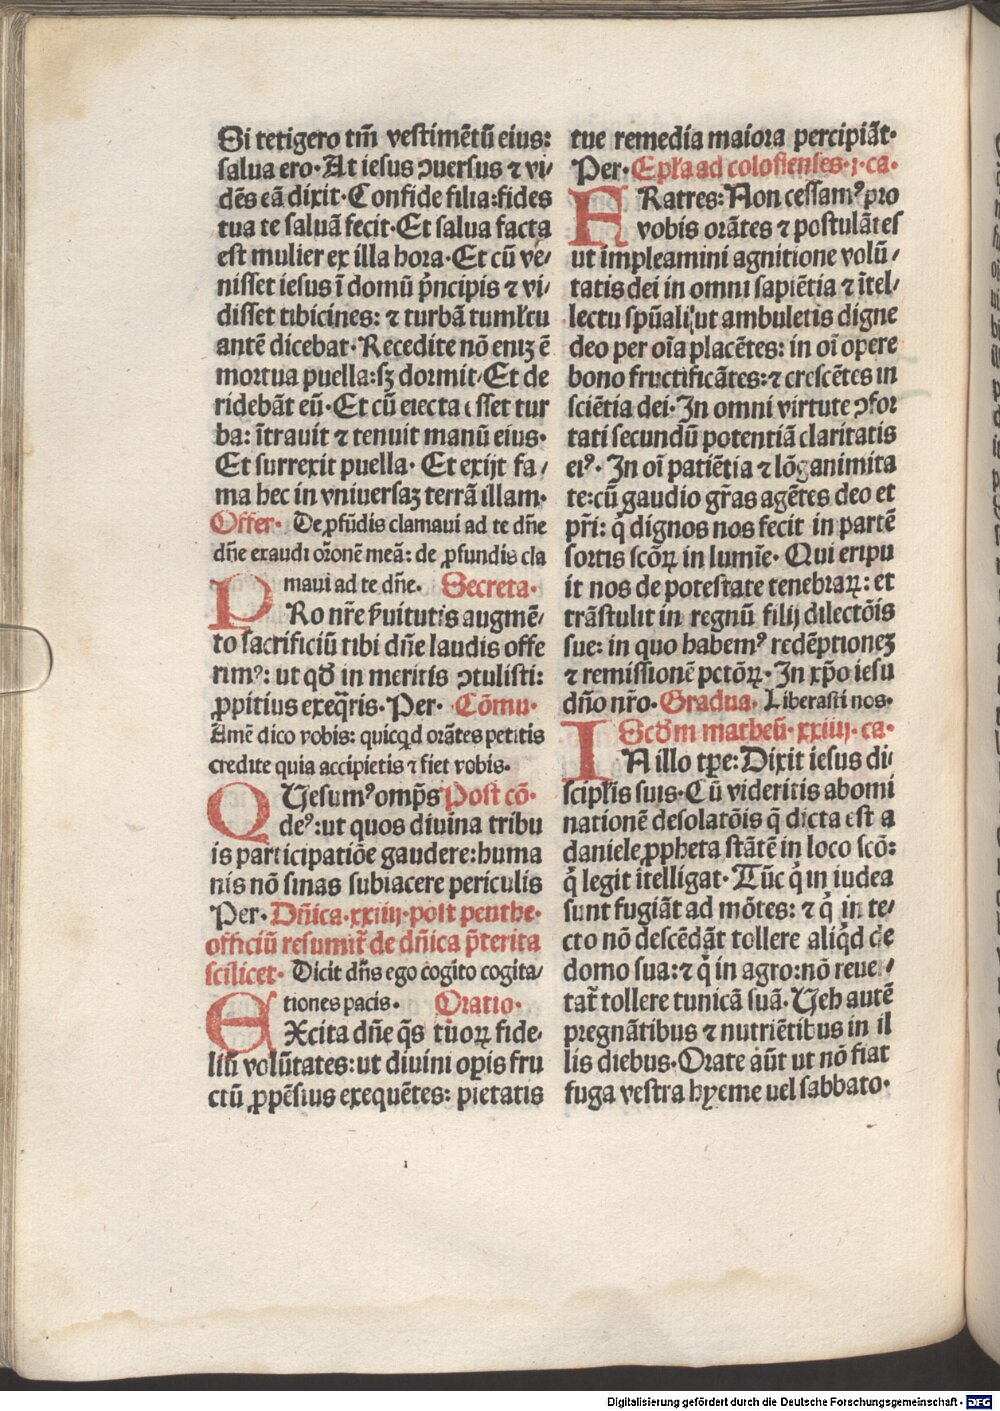 Si tetigero tm̄ vestimētū eius:
salua ero·At iesus ↄuersus ⁊ vi⸗
dēs eā dixit·Confide filia:fides
tua te saluā fecit·Et salua facta
est mulier ex illa hora·Et cū ve⸗
nisset iesus ī domū pͥncipis ⁊ vi⸗
disset tibicines: ⁊ turbā tumłtu
antē dicebat·Recedite nō eniꝫ ē
mortua puella:sꝫ dormit·Et de
ridebāt eū·Et cū eiecta esset tur
ba: ītrauit ⁊ tenuit manū eius·
Et surrexit puella· Et exijt fa⸗
ma hec in vniuersaꝫ terrā illam·
Offer· De ꝓfūdis clamaui ad te dn̄e
dn̄e exaudi or̄onē meā: de ꝓfundis cla
maui ad te dn̄e. Secreta·
PRo nr̄e ẜuitutis augmē⸗
to sacrificiū tibi dn̄e laudis offe
rimꝰ: ut qd̄ in meritis ↄtulisti:
ꝓpitius exeq̄ris·Per· Cōmu·
Amē dico vobis: quicqd orātes petitis
credite quia accipietis ⁊ fiet vobis·
QUesumꝰ omp̄s Post cō·
deꝰ:ut quos diuina tribu
is participatiōe gaudere:huma
nis nō sinas subiacere periculis
Per·Dn̄ica·xxiiij·post penthe·
officiū resumit᷑ de dn̄ica p̄terita
scilicet· Dicit dn̄s ego cogito cogita⸗
tiones pacis· Oratio·
EXcita dn̄e q̄s tuoꝝ fide⸗
liū volūtates:ut diuini opis fru
ctū ꝓpēsius exequētes: pietatis
tue remedia maiora percipiāt·
Per·Epła ad colossenses·j·ca·
FRatres:Non cessamꝰ pro
vobis orātes ⁊ postulātes
ut impleamini agnitione volū⸗
tatis dei in omni sapiētia ⁊ ītel⸗
lectu spūali:ut ambuletis digne
deo per oīa placētes: in oī opere
bono fructificātes:⁊ crescētes in
sciētia dei·In omni virtute ↄfor
tati secundū potentiā claritatis
eiꝰ· In oī patiētia ⁊ lōganimita
te:cū gaudio gr̄as agētes deo et
pr̄i: q̄ dignos nos fecit in partē
sortis scōꝝ in lumīe· Qui eripu
it nos de potestate tenebraꝝ: et
trāstulit in regnū filij dilectōis
sue: in quo habemꝰ redēptioneꝫ
⁊ remissionē pctōꝝ·In xp̄o iesu
dn̄o nr̄o·Gradua· Liberasti nos·
Scd̄m matheū·xxiiij·ca·
IN illo tꝑe:Dixit iesus di⸗
scipłis suis·Cū videritis abomi
nationē desolatōis q̄ dicta est a
daniele ꝓpheta stātē in loco scō:
qͥ legit itelligat·Tūc qͥ in iudea
sunt fugiāt ad mōtes: ⁊ qͥ in te⸗
cto nō descēdāt tollere aliqͥd de
domo sua:⁊ qͥ in agro:nō reuer⸗
tat᷑ tollere tunicā suā·Ueh autē
pregnātibus ⁊ nutriētibus in il
lis diebus·Orate aūt ut nō fiat
fuga vestra hyeme uel sabbato·
Digitalisierung gefördert durch die Deutsche Forschungsgemeinschaft - DFG